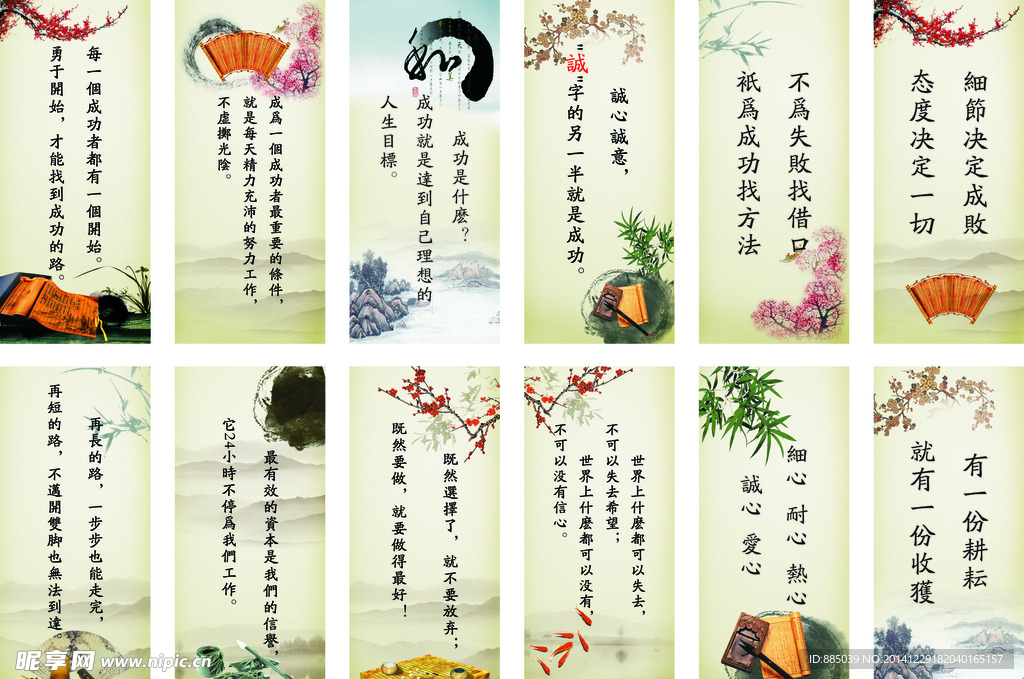 每一個成功者都有一個開始。
勇于開始，才能找到成功的路。
成爲一個成功者最重要的條件，
就是每天精力充沛的努力工作，
不虛擲光陰。
和
成功是什麽？
成功就是達到自己理想的
人生目標。
誠心誠意，
"誠"字的另一半就是成功。
不爲失敗找借口
衹爲成功找方法
細節决定成敗
态度决定一切
再長的路，一步步也能走完，
再短的路，不邁開雙脚也無法到達。
最有效的資本是我們的信譽，
它24小時不停爲我們工作。
既然選擇了，就不要放弃；
既然要做，就要做得最好！
世界上什麽都可以失去，
不可以失去希望；
世界上什麽都可以没有，
不可以没有信心。
細心 耐心 熱心
誠心 愛心
有一份耕耘
就有一份收獲
昵享网 www.nipic.cn
ID:885039 NO:20141229182040165157